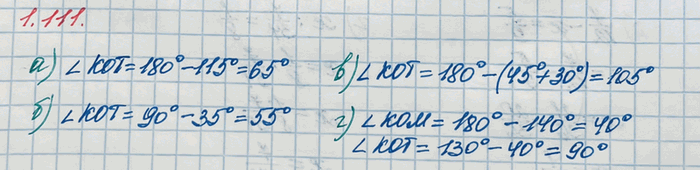 1.111.
а) ∠KOT=180°-115°=65°
б) ∠KOT=90°-35°=55°
в) ∠KOT=180°-(45°+30°)=105°
г) ∠KOM=180°-140°=40°
∠KOT=130°-40°=90°